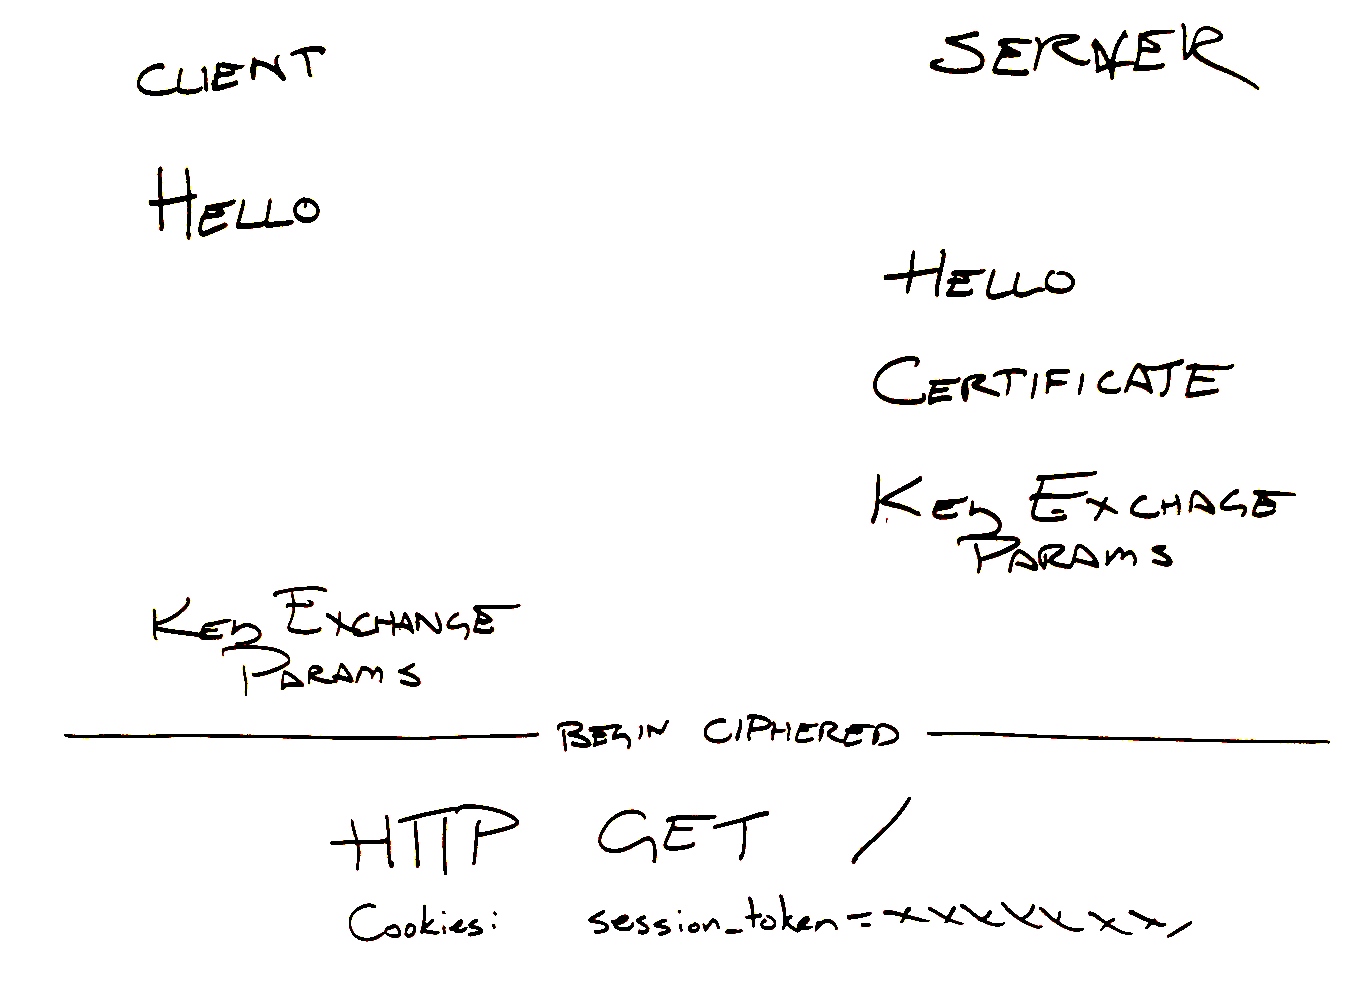 CLIENT SERVER
HELLO
HELLO
CERTIFICATE
KEY EXCHAGE
PARAMS
KEY EXCHANGE
PARAMS
BEGIN CIPHERED
HTTP GET /
Cookies: session_token=xxxxxxxx,